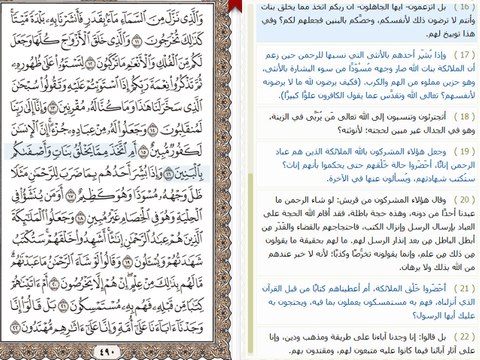 ( 16 ) بل أتزعمون- أيها الجاهلون- أن ربكم اتخذ مما يخلق بنات
وأنتم لا ترضون ذلك لأنفسكم، وخصَّكم بالبنين فجعلهم لكم؟ وفي
هذا توبيخ لهم.
( 17 ) وإذا بُشِّر أحدهم بالأنثى التي نسبها للرحمن حين زعم
أن الملائكة بنات الله صار وجهه مُسْوَدًّا من سوء البشارة بالأنثى،
وهو حزين مملوء من الهم والكرب. (فكيف يرضون لله ما لا يرضونه
لأنفسهم؟ تعالى الله وتقدَّس عما يقول الكافرون علوًّا كبيرًا).
( 18 ) أتجترئون وتنسبون إلى الله تعالى مَن يُرَبَّى في الزينة،
وهو في الجدال غير مبين لحجته؛ لأنوثته؟
( 19 ) وجعل هؤلاء المشركون بالله الملائكة الذين هم عباد
الرحمن إناثًا، أحَضَروا حالة خَلْقهم حتى يحكموا بأنهم إناث؟
ستُكتب شهادتهم، ويُسألون عنها في الآخرة.
( 20 ) وقال هؤلاء المشركون من قريش: لو شاء الرحمن ما
عبدنا أحدًا من دونه، وهذه حجة باطلة، فقد أقام الله الحجة على
العباد بإرسال الرسل وإنزال الكتب، فاحتجاجهم بالقضاء والقَدَر مِن
أبطل الباطل مِن بعد إنذار الرسل لهم. ما لهم بحقيقة ما يقولون
مِن ذلك مِن علم، وإنما يقولونه تخرُّصًا وكذبًا؛ لأنه لا خبر عندهم
من الله بذلك ولا برهان.
( 21 ) أحَضَروا خَلْق الملائكة، أم أعطيناهم كتابًا من قبل القرآن
الذي أنزلناه، فهم به مستمسكون يعملون بما فيه، ويحتجون به
عليك أيها الرسول؟
( 22 ) بل قالوا: إنا وجدنا آباءنا على طريقة ومذهب ودين، وإنا
على آثار آبائنا فيما كانوا عليه متبعون لهم، ومقتدون بهم.
وَالَّذِي نَزَّلَ مِنَ السَّمَاءِ مَاءً بِقَدَرٍ فَأَنشَرْنَا بِهِ بَلْدَةً مَّيْتًا
كَذَٰلِكَ تُخْرَجُونَ ١١ وَالَّذِي خَلَقَ الْأَزْوَاجَ كُلَّهَا وَجَعَلَ
لَكُم مِّنَ الْفُلْكِ وَالْأَنْعَامِ مَا تَرْكَبُونَ ١٢ لِتَسْتَوُوا عَلَىٰ ظُهُورِهِ
ثُمَّ تَذْكُرُوا نِعْمَةَ رَبِّكُمْ إِذَا اسْتَوَيْتُمْ عَلَيْهِ وَتَقُولُوا سُبْحَانَ
الَّذِي سَخَّرَ لَنَا هَٰذَا وَمَا كُنَّا لَهُ مُقْرِنِينَ ١٣ وَإِنَّا إِلَىٰ رَبِّنَا
لَمُنقَلِبُونَ ١٤ وَجَعَلُوا لَهُ مِنْ عِبَادِهِ جُزْءًا إِنَّ الْإِنسَانَ
لَكَفُورٌ مُّبِينٌ ١٥ أَمِ اتَّخَذَ مِمَّا يَخْلُقُ بَنَاتٍ وَأَصْفَاكُم
بِالْبَنِينَ ١٦ وَإِذَا بُشِّرَ أَحَدُهُم بِمَا ضَرَبَ لِلرَّحْمَٰنِ مَثَلًا
ظَلَّ وَجْهُهُ مُسْوَدًّا وَهُوَ كَظِيمٌ ١٧ أَوَمَن يُنَشَّأُ فِي
الْحِلْيَةِ وَهُوَ فِي الْخِصَامِ غَيْرُ مُبِينٍ ١٨ وَجَعَلُوا الْمَلَائِكَةَ
الَّذِينَ هُمْ عِبَادُ الرَّحْمَٰنِ إِنَاثًا أَشَهِدُوا خَلْقَهُمْ سَتُكْتَبُ
شَهَادَتُهُمْ وَيُسْأَلُونَ ١٩ وَقَالُوا لَوْ شَاءَ الرَّحْمَٰنُ مَا عَبَدْنَاهُم
مَّا لَهُم بِذَٰلِكَ مِنْ عِلْمٍ إِنْ هُمْ إِلَّا يَخْرُصُونَ ٢٠ أَمْ آتَيْنَاهُمْ
كِتَابًا مِّن قَبْلِهِ فَهُم بِهِ مُسْتَمْسِكُونَ ٢١ بَلْ قَالُوا إِنَّا
وَجَدْنَا آبَاءَنَا عَلَىٰ أُمَّةٍ وَإِنَّا عَلَىٰ آثَارِهِم مُّهْتَدُونَ ٢٢
٤٩٠